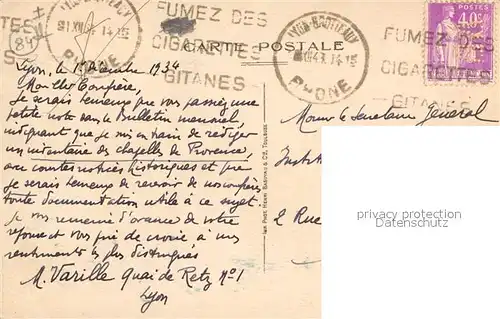 FUMEZ DES
CIGARETTES
GITANES
LYON-BROTTEAUX
RHONE
FUMEZ DES
CIGARETTES
GITANES
LYON-BROTTEAUX
RHONE
POSTES
40c
84
CARTE POSTALE
Lyon, le 1 Décembre 1934
Mon cher Confrère,
Je serais heureux que vous passiez une
petite note dans le Bulletin mensuel,
indiquant que je suis en train de rédiger
un inventaire des chapelles de Provence,
avec courtes notices historiques et que
je serais heureux de recevoir de nos confrères
toute documentation utile à ce sujet
Je vous remercie d'avance de votre
réponse et vous prie de croire à mes
sentiments les plus distingués
M. Varille Quai de Retz no 1
Lyon
Monsieur le Secrétaire Général
2 Rue
privacy protection
www.delcampe.net